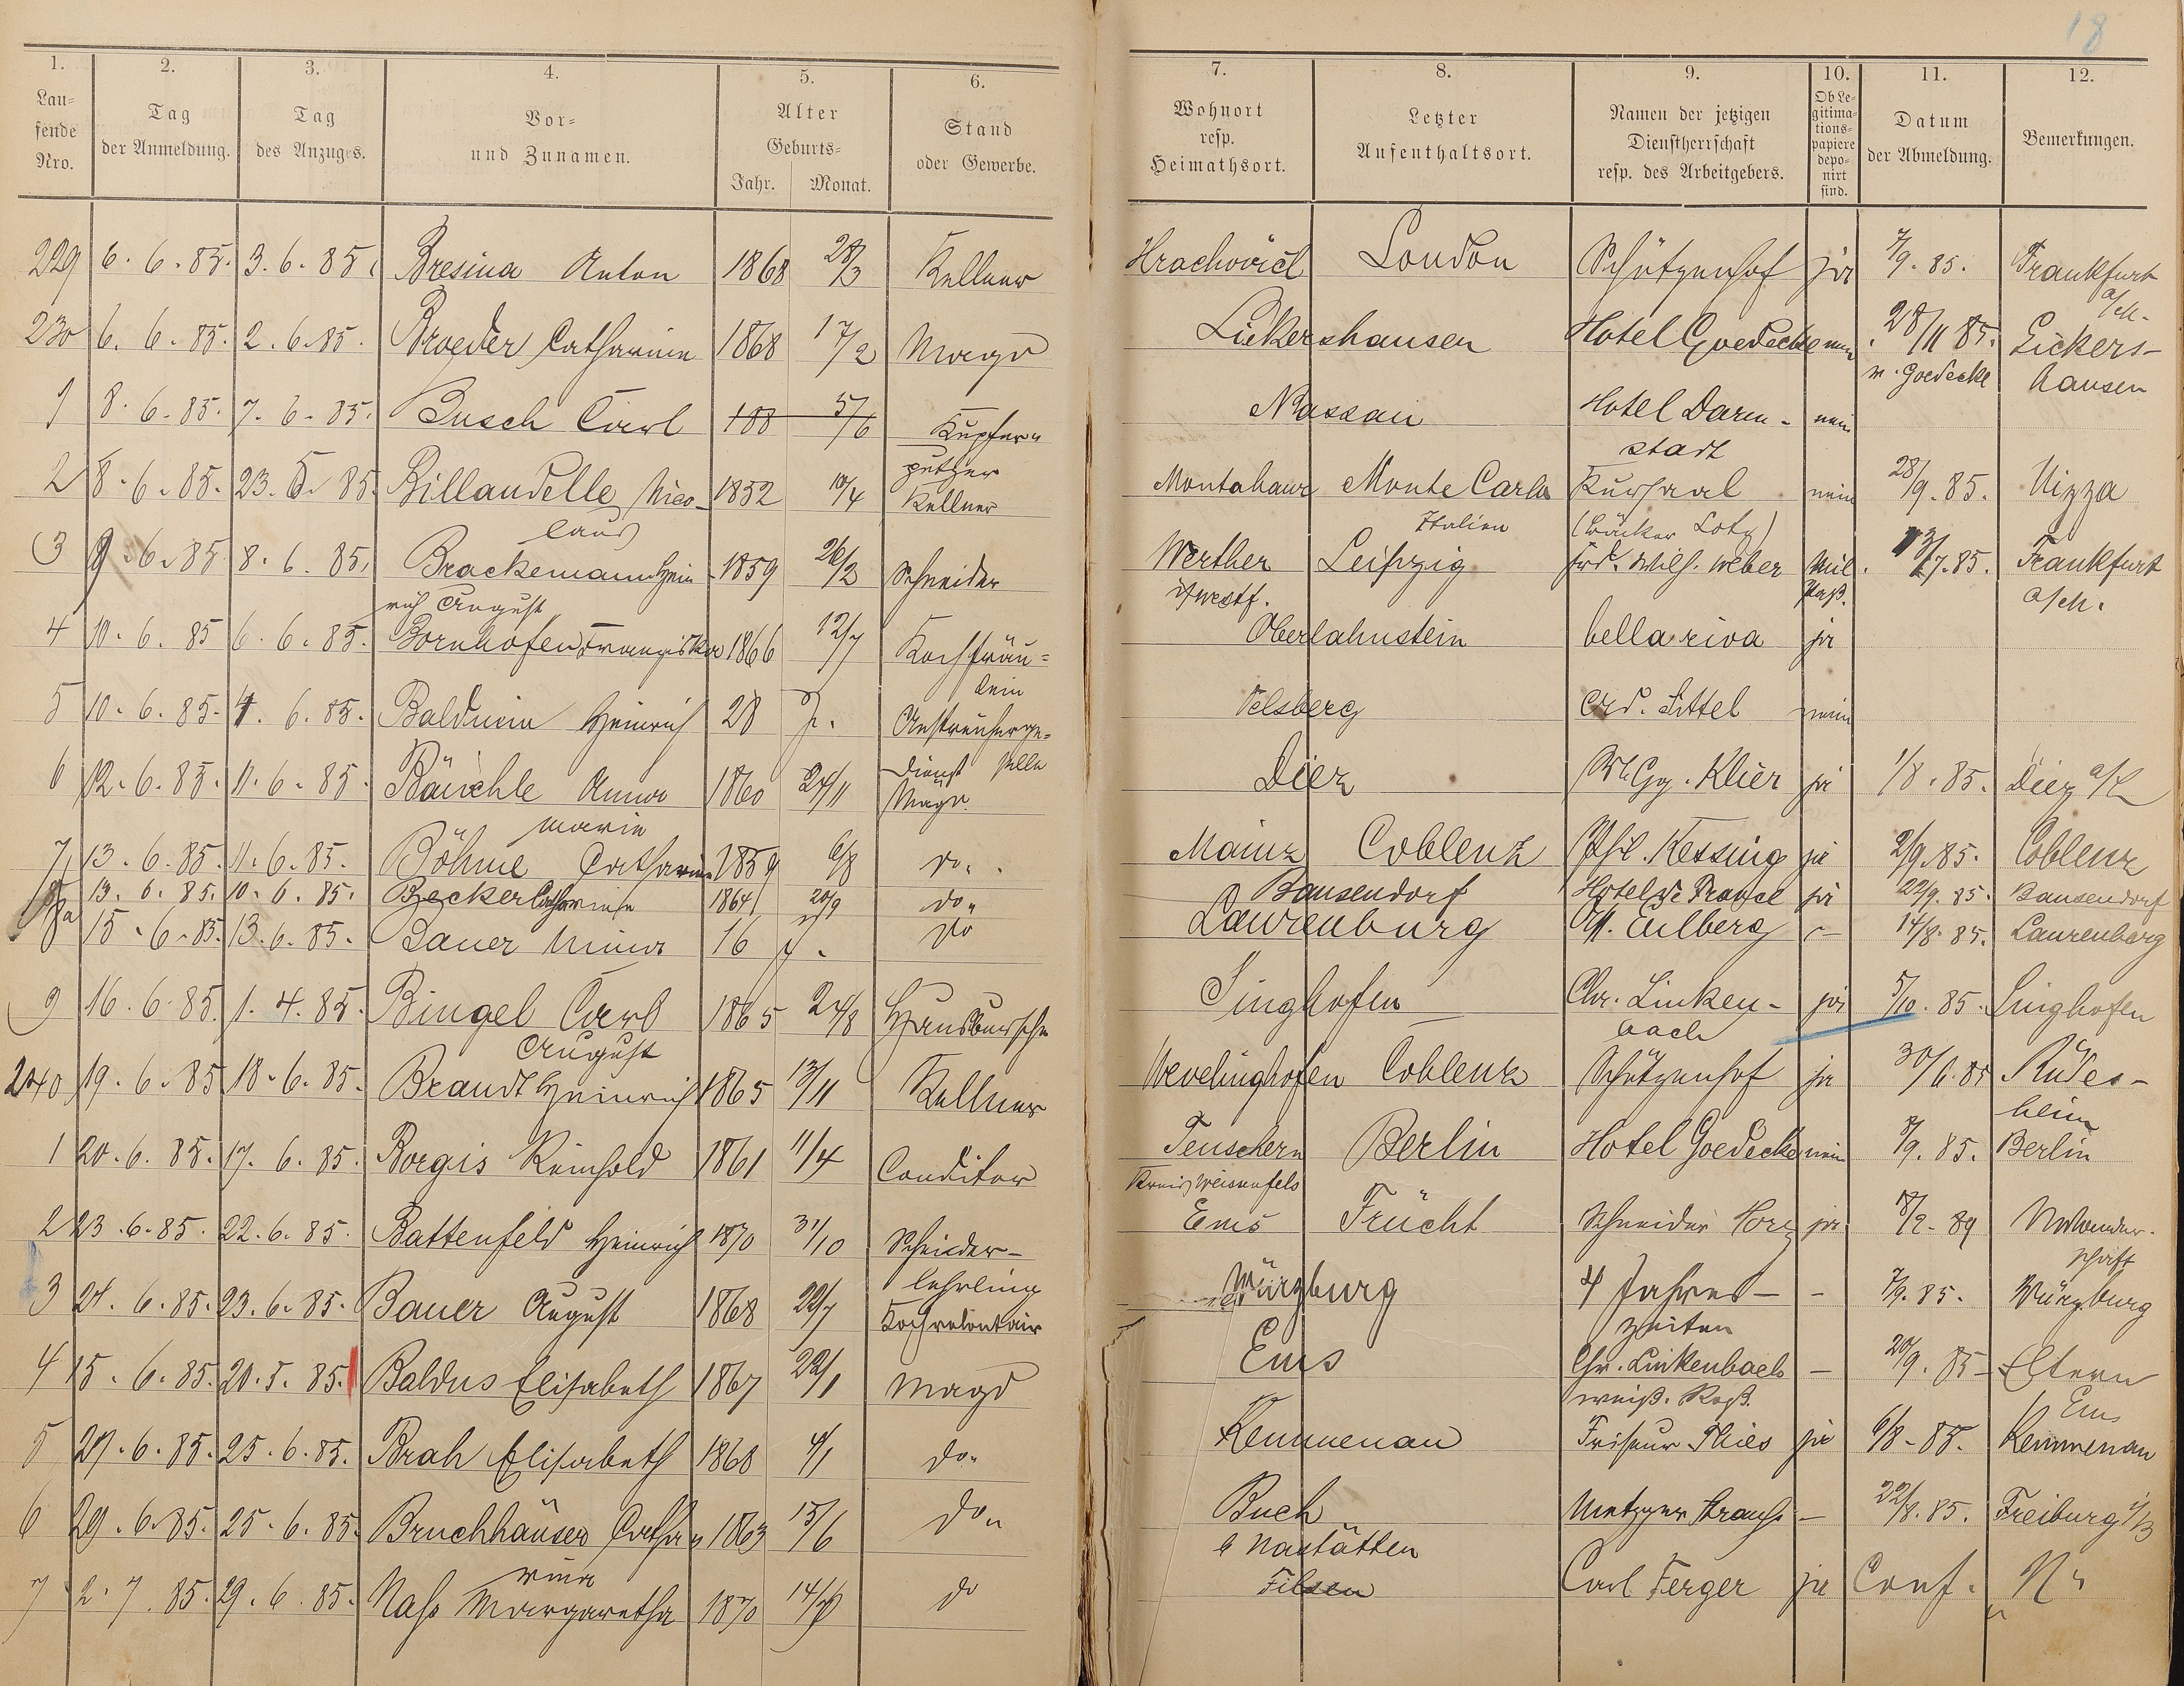 18
1. 2. 3. 4. 5. 6. 7. 8. 9. 10. 11. 12.
Lau-
fende
Nro.
Tag
der Anmeldung.
Tag
des Anzuges.
Vor-
und Zunamen.
Alter
Geburts-
Jahr. Monat.
Stand
oder Gewerbe.
Wohnort
resp.
Heimathsort.
Letzter
Aufenthaltsort.
Namen der jetzigen
Dienstherrschaft
resp. des Arbeitgebers.
Ob Le-
gitima-
tions-
papiere
depo-
nirt
sind.
Datum
der Abmeldung.
Bemerkungen.
229 6. 6. 85. 3. 6. 85. Bresina Anton 1868 28/3 Kellner Hrachovicl London Schützenhof ja 7/9. 85. Frankfurt
a/M.
230 6. 6. 85. 2. 6. 85. Broeder Catharina 1868 17/2 Magd Lickershausen Hotel Goedecke nein 28/11 85. Lickers-
w. Goedecke hausen
1 8. 6. 85. 7. 6. 85. Busch Carl 188 5/6 Kupfer-
putzer Nassau Hotel Darm-
stadt nein
2 8. 6. 85. 23. 5. 85. Billaudelle Nico-
laus 1852 10/4 Kellner Montabaur Monte Carlo
Italien Kursaal nein 28/9. 85. Nizza
(Bäcker Lotz)
3 9. 6. 85 8. 6. 85. Brackemann Hein-
rich August 1859 26/2 Schneider Werther
i/Westf. Leipzig Frd. Wilh. Weber Mil.
Paß. 13/7. 85. Frankfurt
a/M.
4 10. 6. 85 6. 6. 85. Bornhofen Franziska 1866 12/7 Kochfräu-
lein Oberlahnstein bella riva ja
5 10. 6. 85. 4. 6. 85. Balduin Heinrich 28 J. Anstreicherge-
selle Velsberg Ad. Sittel nein
6 12. 6. 85. 11. 6. 85. Bäuchle Anna
Maria 1860 24/11 Dienst
Magd. Diez Gg. Klier ja 1/8. 85. Diez a/L
7 13. 6. 85. 11. 6. 85. Böhme Catharina 1859 6/8 do. Mainz Coblenz Phil. Kessing ja 2/9. 85. Coblenz
8 13. 6. 85. 10. 6. 85. Becker Catharina 1864 20/9 do. Bausendorf Hotel de France ja 22/9. 85. Bausendorf
8a 15. 6. 85. 13. 6. 85. Bauer Mina 16 J. do Laurenburg A. Eulberg - 14/8. 85. Laurenburg
9 16. 6. 85. 1. 4. 85. Bingel Carl
August 1865 24/8 Hausbursche Singhofen Chr. Linken-
bach ja 5/10. 85. Singhofen
240 19. 6. 85 18. 6. 85. Brandt Heinrich 1865 13/11 Kellner Wevelinghofen Coblenz Schützenhof ja 30/6. 85 Rüdes-
heim
1 20. 6. 85. 17. 6. 85. Borgis Reinhold 1861 11/4 Conditor Teuschern
Kreis Weisenfels Berlin Hotel Goedecke nein 8/9. 85. Berlin
2 23. 6. 85. 22. 6. 85. Battenfeld Heinrich 1870 31/10 Schneider-
lehrling Ems Frücht Schneider ja 18/2. 89
3 24. 6. 85. 23. 6. 85. Bauer August 1868 22/7 Kochvolontair Würzburg 4 Jahres-
zeiten - 7/9. 85. Würzburg
4 15. 6. 85. 20. 5. 85. Baldus Elisabeth 1867 22/1 Magd Ems Chr. Linkenbach
weiß. Roß. - 20/9. 85 Eltern
Ems
5 29. 6. 85. 25. 6. 85. Brah Elisabeth 1868 4/1 do. Kemmenau Friseur Thies ja 6/8. 85. Kemmenau
6 29. 6. 85. 25. 6. 85. Bruchhäuser Catha-
rina 1863 15/6 do. Buch
b Nastätten Metzger Strauß - 22/8. 85. Freiburg i/B
7 2. 7. 85. 29. 6. 85. Naß Margaretha 1870 14/ do Filsen Carl Ferger ja Conf. N.